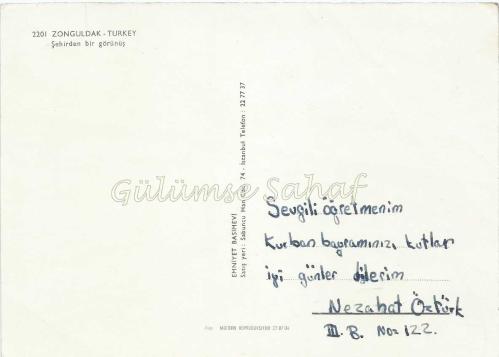 2201 ZONGULDAK - TURKEY
Şehirden bir görünüş
EMNİYET BASIMEVİ
Satış yeri: Sabuncu Han No. 74 - İstanbul Telefon: 22 77 37
Gülümse Sahaf
Sevgili öğretmenim
Kurban bayramınızı kutlar
iyi günler dilerim
Nezahat Öztürk
III. B. No: 122.